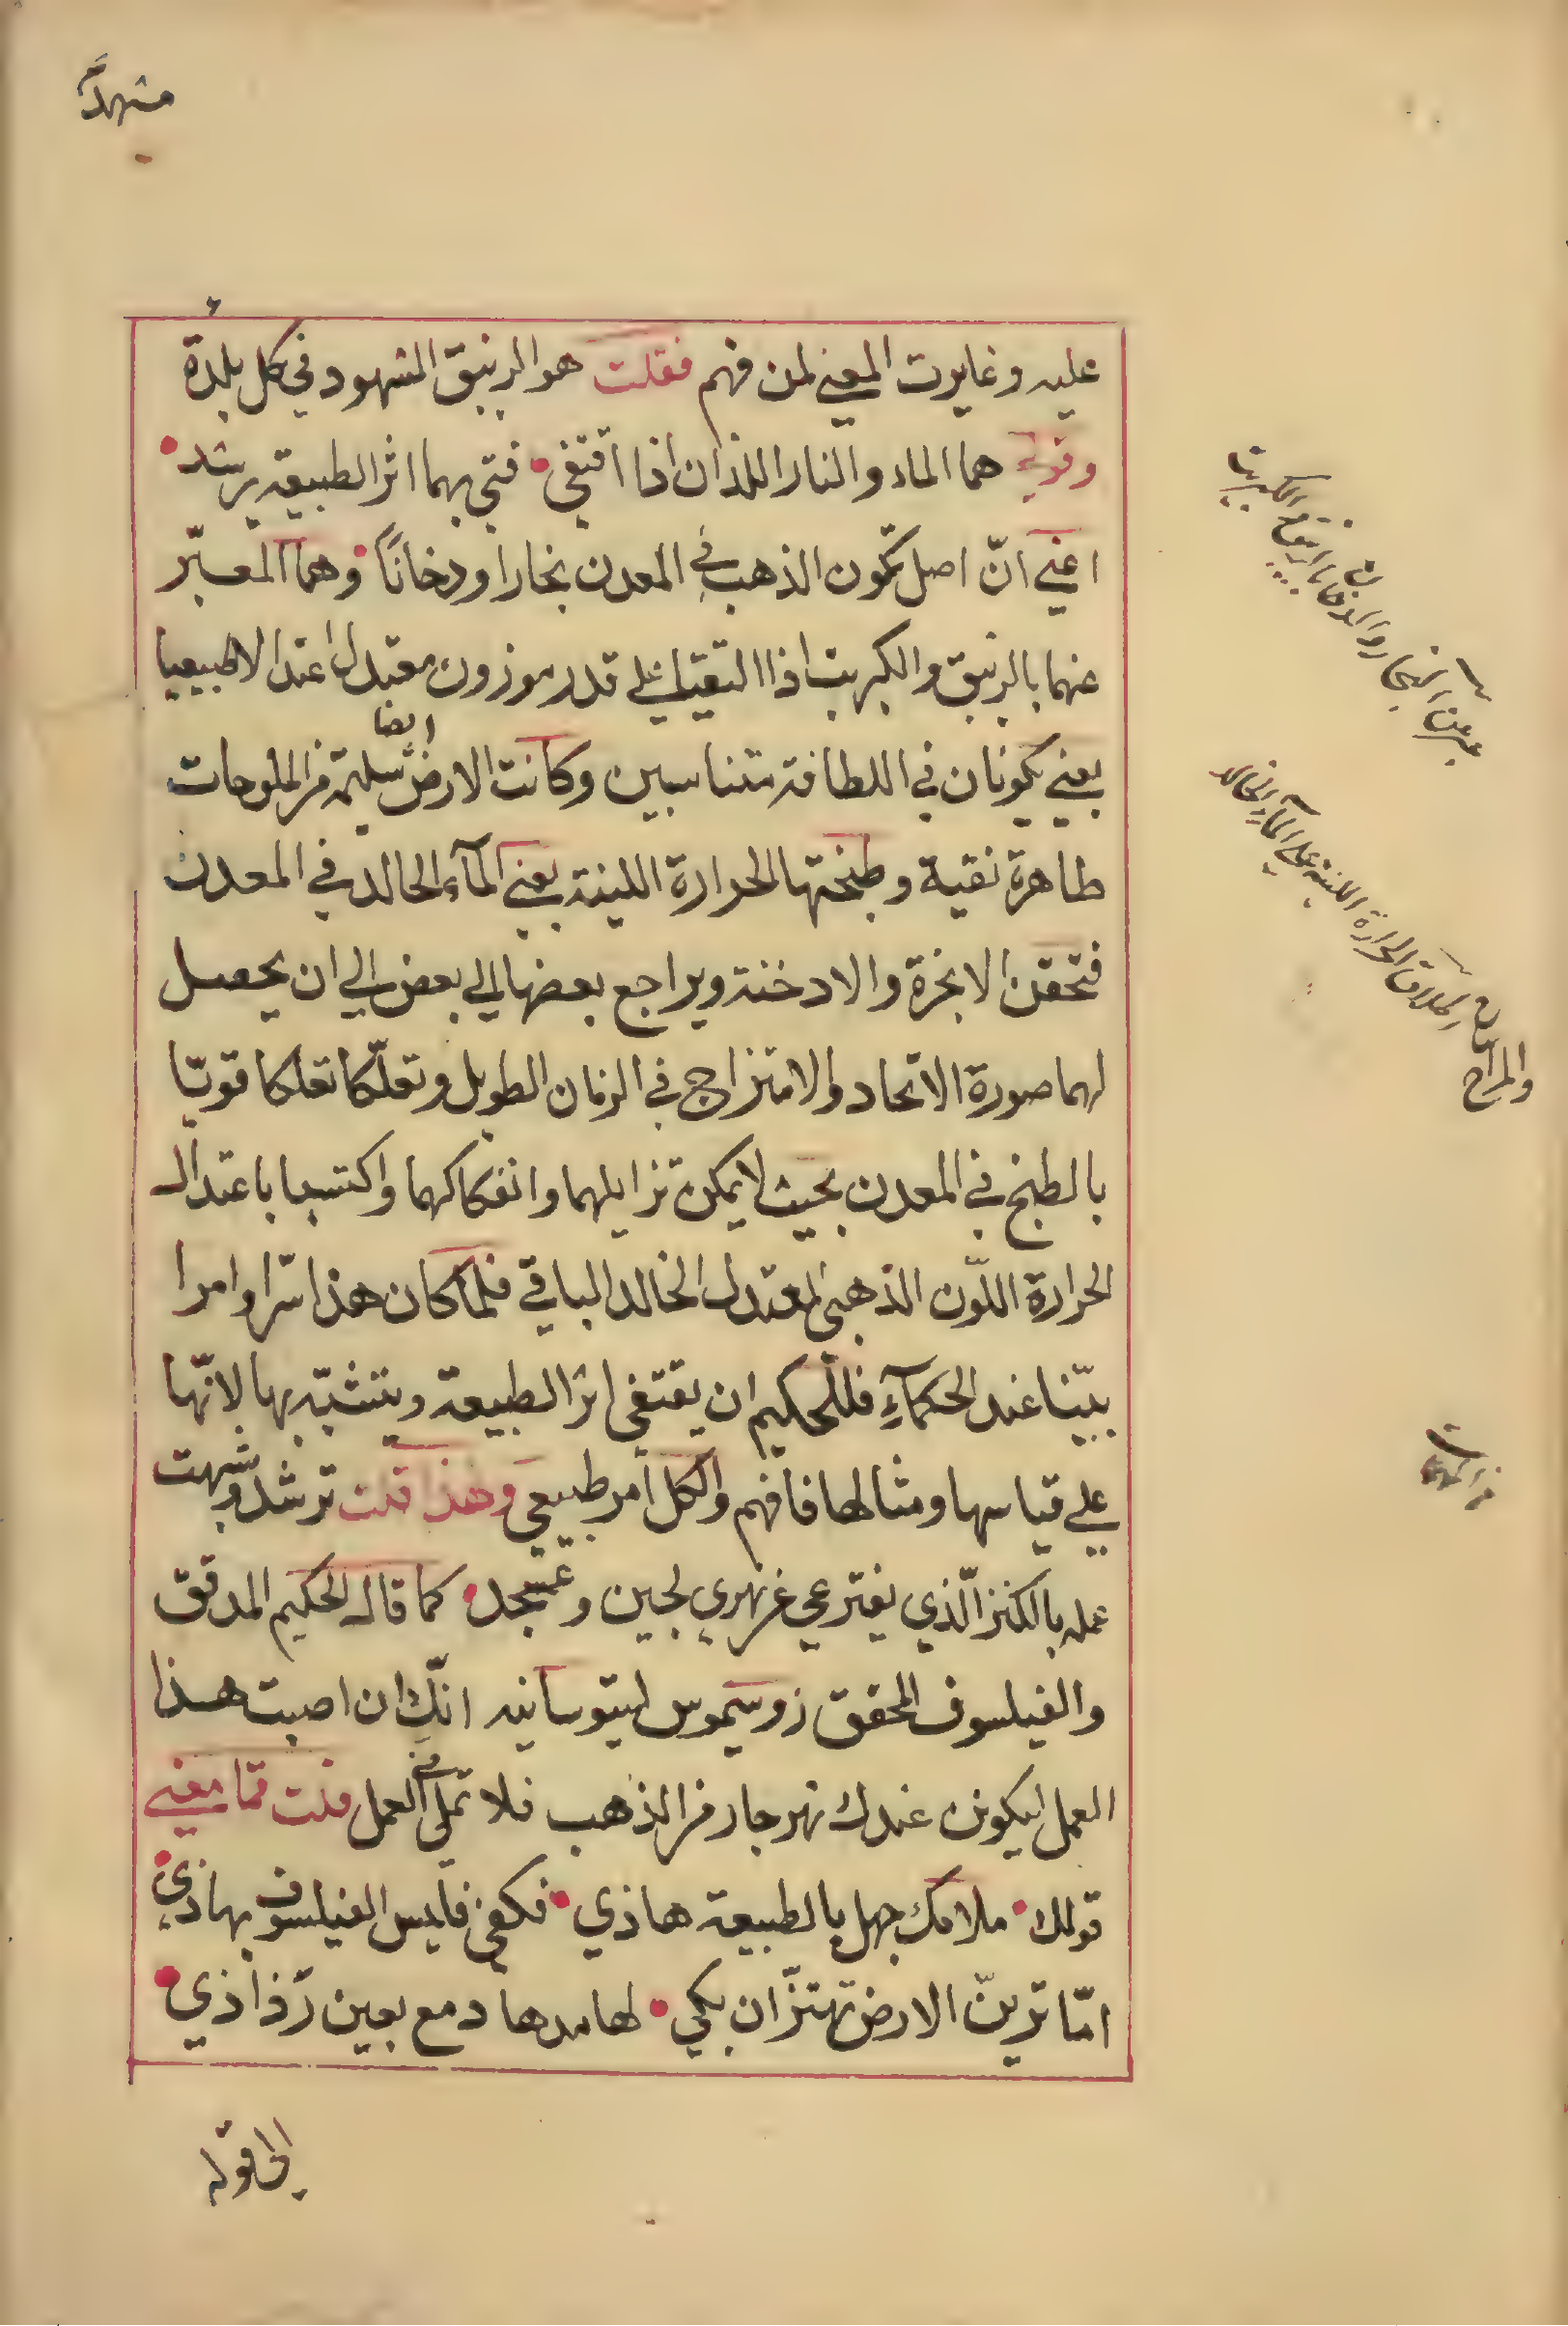 عليه وغايرت المعنى لمن فهم فقلت هو الزيبق المشهود في كل بلدة
وقولي هما الماء والنار اللذان اذا اقتفى فتى بهما اثر الطبيعة يرشد
اعني انّ اصل تكون الذهب في المعدن بخارا ودخاناً وهما المعبّر
عنهما بالزيبق والكبريت اذا التقيا على قدر موزون معتدل اعتدالا طبيعيا
يعني يكونان في اللطافة متناسبين وكانت الارض ايضا سليمة من الملوحات
طاهرة نقية وطبختها الحرارة اللينة يعني المآء الخالد في المعدن
فتحقن الابخرة والادخنة ويراجع بعضها الى بعض الى ان يحصل
لهما صورة الاتحاد والامتزاج في الزمان الطويل وتعلّكا تعلكا قويّا
بالطبخ في المعدن بحيث لا يمكن تزايلهما وانفكاكهما واكتسبا باعتدال
الحرارة اللّون الذهبى المعتدل الخالد الباقي فلما كان هذا سّرا وامرا
بيّنا عند الحكمآءِ فللحكيم ان يقتفى اثر الطبيعة ويتشبّه بها لانّها
على قياسها ومثالها فافهم والكل امر طبيعي وهذا قلت ترشد وشبهت
عمله بالكنز الّذي يفترعى عن نهري لجين وعسجد كما قال الحكيم المدقق
والفيلسوف المحقق زوسيموس لتيوسانيه انّك ان اصبت هذا
العمل ليكونن عندك نهر جار من الذهب فلا تملّ من العمل قلت فما معنى
قولك ملامك جهل بالطبيعة هاذي فكفى فليس الفيلسوف بهاذي
امّا ترينّ الارض تهتزّ ان بكى لها مدها دمع بعين رذاذي
الى قوله
عبر عن البخار والدخان بالزيبق والكبريت
اطلاق الحرارة اللينة على المآء الخالد
من الملوحات